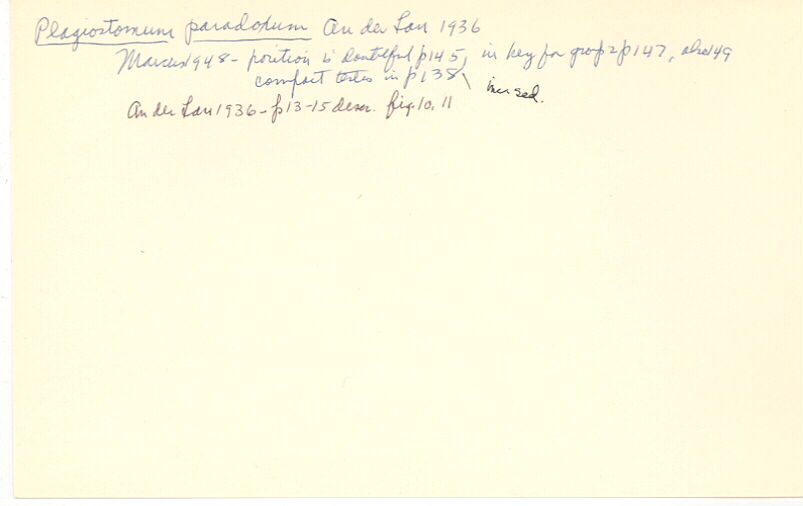 Plagiostomum paradoxum An der Lan 1936
Marcus 1948 - position is doubtful p145, in key for group 2 p147, also 149
compact testes in p138
inc sed.
An der Lan 1936 - p13-15 descr. fig. 10, 11